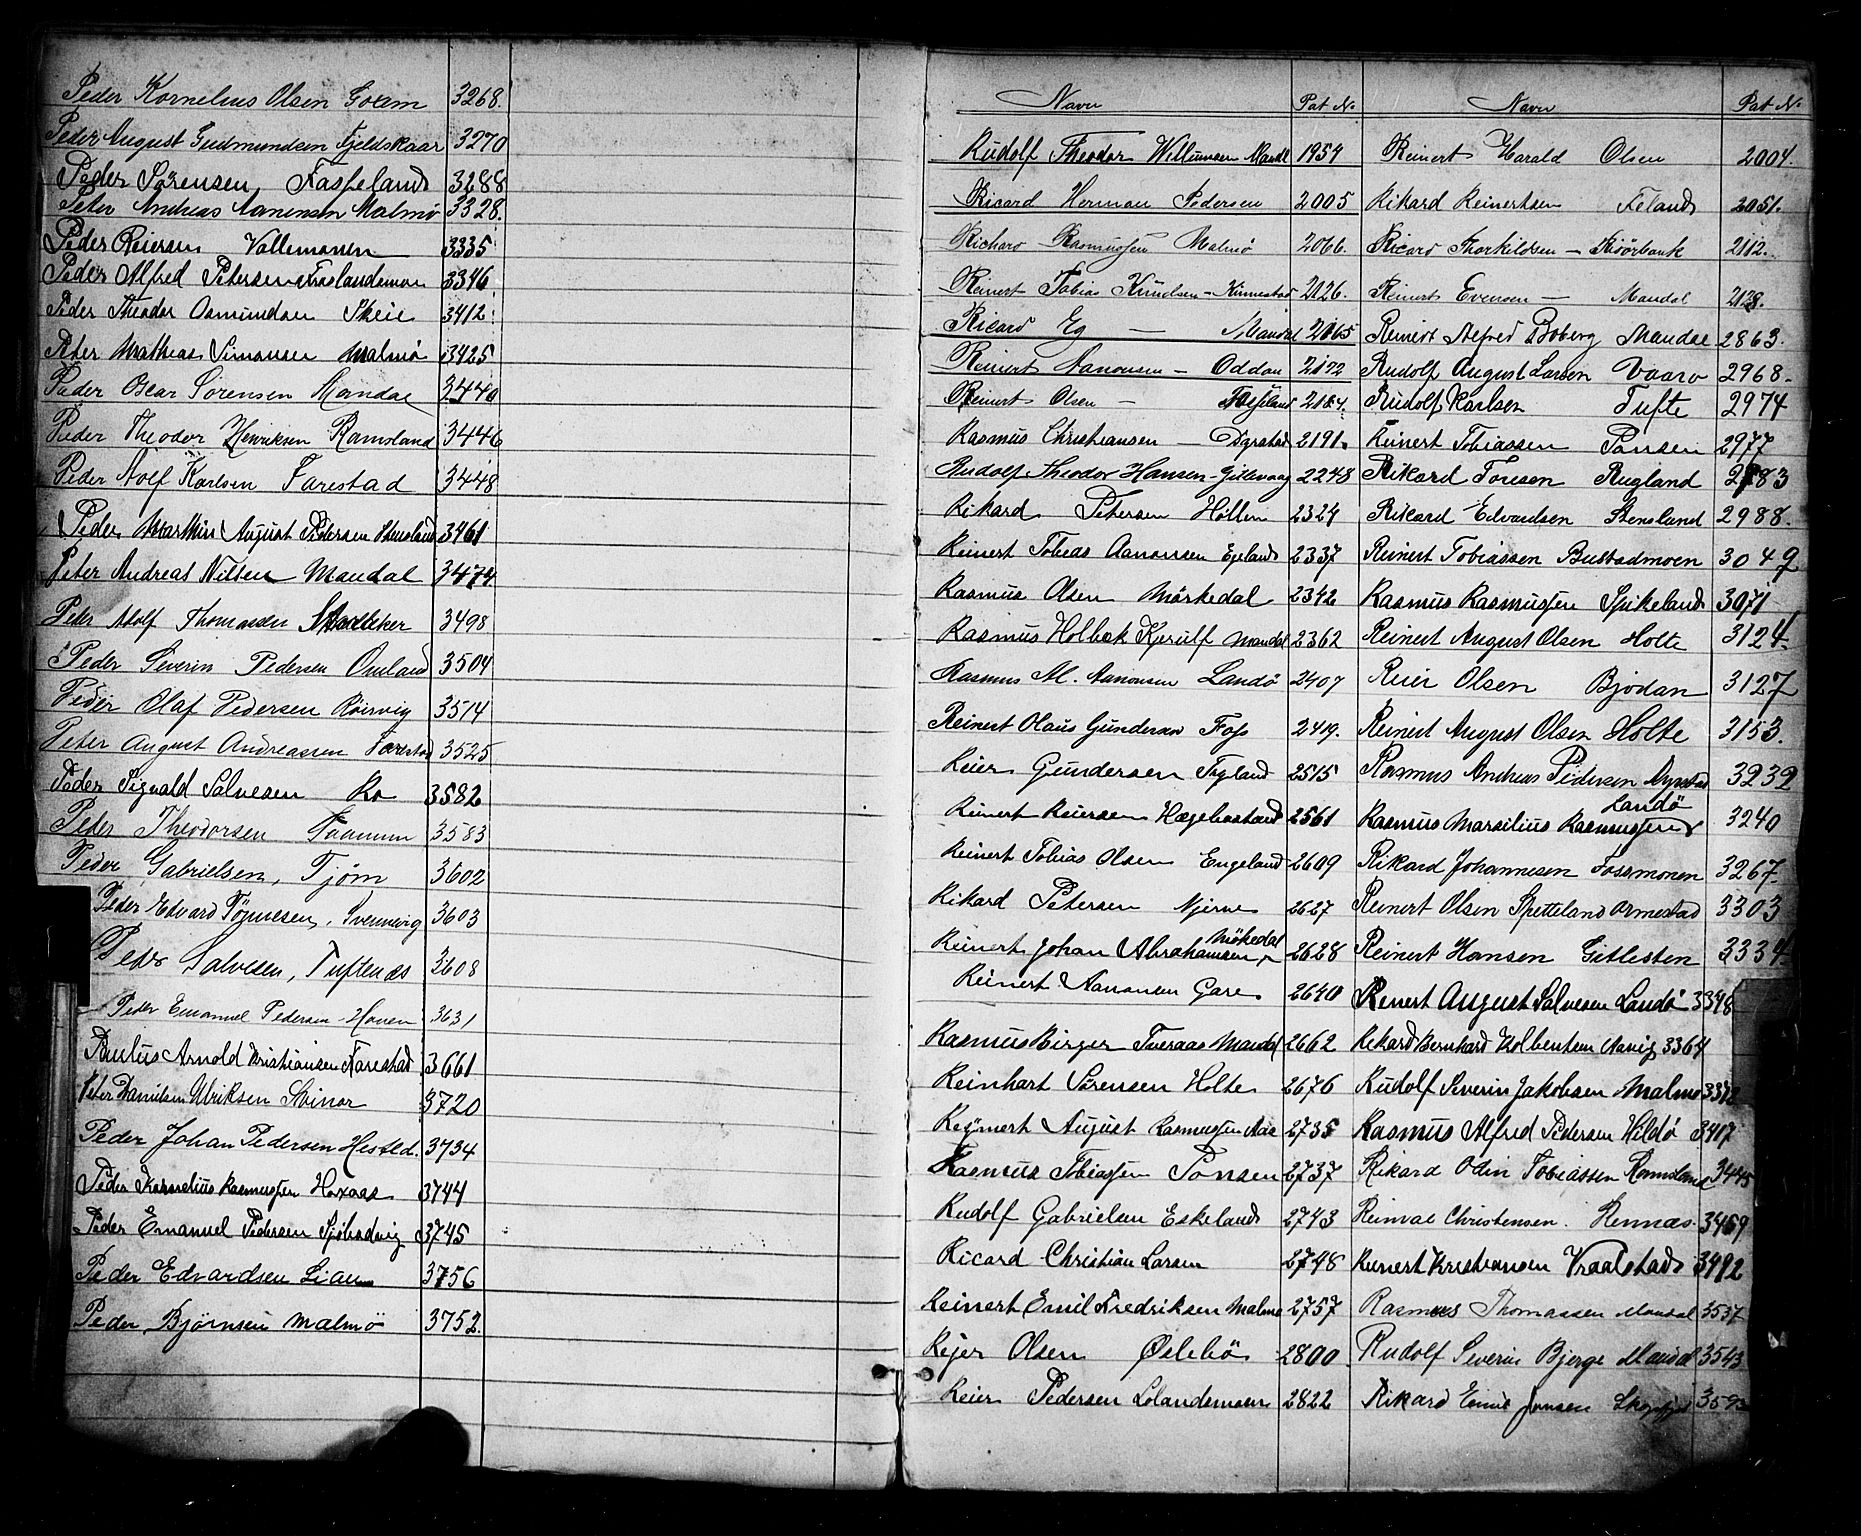 Peder Kornelius Olsen Goem 3268.
Peder August Gudmundsen Fjeldskaar 3270
Peder Sørensen, Fasseland 3288
Peter Andreas Aanensen Malmø 3328.
Peder Reiersen Vallemoen 3335
Peder Alfred Petersen Froslandsmoen 3346
Peder Theodor Osmundsen Skeie 3412
Peter Mathias Simonsen Malmø 3425
Peder Oscar Sørensen Mandal 3440
Peder Theodor Henriksen Ramsland 3446
Peder Adolf Karlsen Farestad 3448
Peder Marthin August Pedersen Stensland 3461
Peter Andreas Nilsen Mandal 3474
Peder Adolf Thomassen 3498
Peder Severin Pedersen Omland 3504
Peder Olaf Pedersen Röisvig 3514
Peter August Andreassen Farestad 3525
Peder Sigvald Salvesen Ro 3582
Peder Theodorsen Faanum 3583
Peder Gabrielsen, Tjøm 3602
Peder Edvard Tönnesen, Svennevig 3603
Peder Salvesen, Tuftenæs 3608
Peder Emanuel Pedersen Hoven 3631
Paulus Arnold Kristiansen Farestad 3661
Peter Danielsen Ulriksen Skinsnes 3720
Peder Johan Pedersen Hested. 3734
Peder Kornelius Rasmussen Haxaas 3744
Peder Emanuel Pedersen Sjöbodvig 3745
Peder Edvardsen Lian 3756
Peder Bjørnsen Malmö 3752.
Navn Pat No. Navn Pat No.
Rudolf Theodor Willumsen Mandl 1954 Reinert Harald Olsen 2004.
Ricard Herman Pedersen 2005 Rikard Reinertsen Feland 2051.
Richard Rasmussen Malmö 2066. Ricard Thorkildsen – Risörbank 2112.
Reinert Tobias Knudsen – Kinnestad 2126. Reinert Evensen – Mandal 2128.
Ricard Eg – Mandal 2165 Reinert Alfred Boberg Mandal 2863.
Reinert Aanonsen – Oddan 2172 Rudolf August Larsen Vaarø 2968.
Reinert Olsen – Fasseland 2184. Rudolf Karlsen Tufte 2974
Rasmus Christiansen – Dyrstad 2191. Reinert Tobiassen Ponsen 2977
Rudolf Theodor Hansen – Gitlevaag 2248 Rikard Toresen Rugland 2983
Rikard Petersen Höllen 2324 Rikard Edvardsen Stensland 2988.
Reinert Tobias Aanonsen Egeland 2337 Reinert Tobiassen Bustadmoen 3049
Rasmus Olsen Mörkedal 2342 Rasmus Rasmussen Spikeland 3071
Rasmus Holbek Kjerulf Mandal 2362 Reinert August Olsen Holte 3124.
Rasmus M. Aanonsen Landö 2407 Reier Olsen Bjodan 3127
Reinert Olaus Gundersen Foss 2419. Reinert August Olsen Holte 3153.
Reier Gundersen Fogland 2515 Rasmus Andreas Pedersen Dyrstad 3239
Reinert Reiersen Hægebostad 2561 Rasmus Marsilius Rasmussen Landö 3240
Reinert Tobias Olsen Engeland 2609 Rikard Johannesen Fossmonen 3267.
Rikard Petersen Njerve 2627 Reinert Olsen Spetteland Ormestad 3303
Reinert Johan Abrahamsen Mökedal 2628 Reinert Hansen Gitlesten 3334.
Reinert Aanonsen Gare 2640 Reinert August Salvesen Landö 3348
Rasmus Birger Tveraas Mandal 2662 Rikard Bernhard Kolbentsen Aavig 3364
Reinhart Sörensen Holte 2676 Rudolf Severin Jakobsen Malmö 3372
Reymert August Rasmussen Aas 2735 Rasmus Alfred Pedersen Hildö 3417
Rasmus Tobiassen Ponsen 2737 Rikard Odin Tobiassen Ramsland 3445
Rudolf Gabrielsen Eskeland 2743 Reinval Christensen. Rennæs. 3459
Ricard Christian Larsen 2748 Reinert Kristiansen Vraalstad 3492
Reinert Emil Fredriksen Malmö 2757 Rasmus Thomassen Mandal 3537
Rejer Olsen Øslebö 2800 Rudolf Severin Bjerge Mandal 3543
Reier Pedersen Lolandsmoen 2822 Rikard Emil Jensen 3593